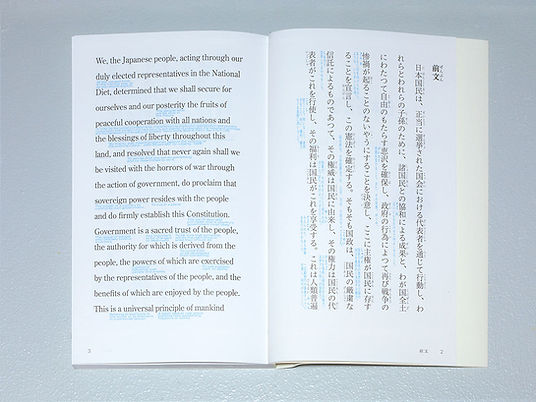 前文
日本国民は、正当に選挙された国会における代表者を通じて行動し、わ
れらとわれらの子孫のために、諸国民との協和による成果と、わが国全土
にわたつて自由のもたらす恵沢を確保し、政府の行為によつて再び戦争の
惨禍が起ることのないやうにすることを決意し、ここに主権が国民に存す
ることを宣言し、この憲法を確定する。そもそも国政は、国民の厳粛な
信託によるものであつて、その権威は国民に由来し、その権力は国民の代
表者がこれを行使し、その福利は国民がこれを享受する。これは人類普遍
前文 2
We, the Japanese people, acting through our
duly elected representatives in the National
Diet, determined that we shall secure for
ourselves and our posterity the fruits of
peaceful cooperation with all nations and
the blessings of liberty throughout this
land, and resolved that never again shall we
be visited with the horrors of war through
the action of government, do proclaim that
sovereign power resides with the people
and do firmly establish this Constitution.
Government is a sacred trust of the people,
the authority for which is derived from the
people, the powers of which are exercised
by the representatives of the people, and the
benefits of which are enjoyed by the people.
This is a universal principle of mankind
3